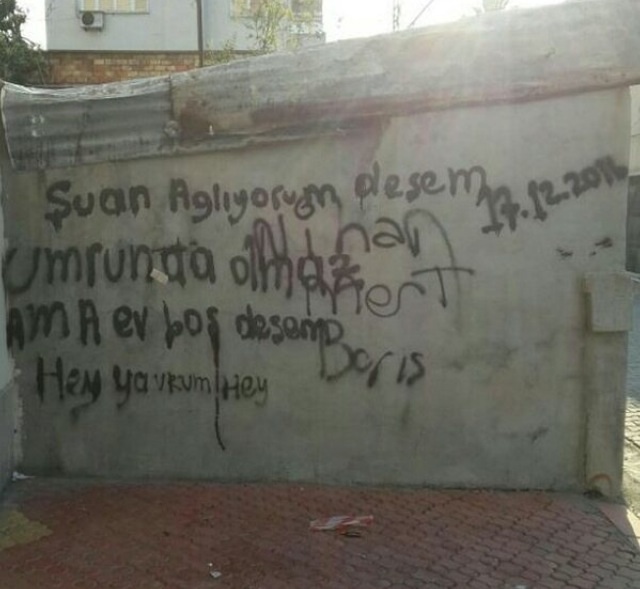 Şuan Aglıyorum desem
17.12.2016
umrunda olmaz
Nihan
Mert
AMA ev boş desem
Boris
Hey yavrum Hey